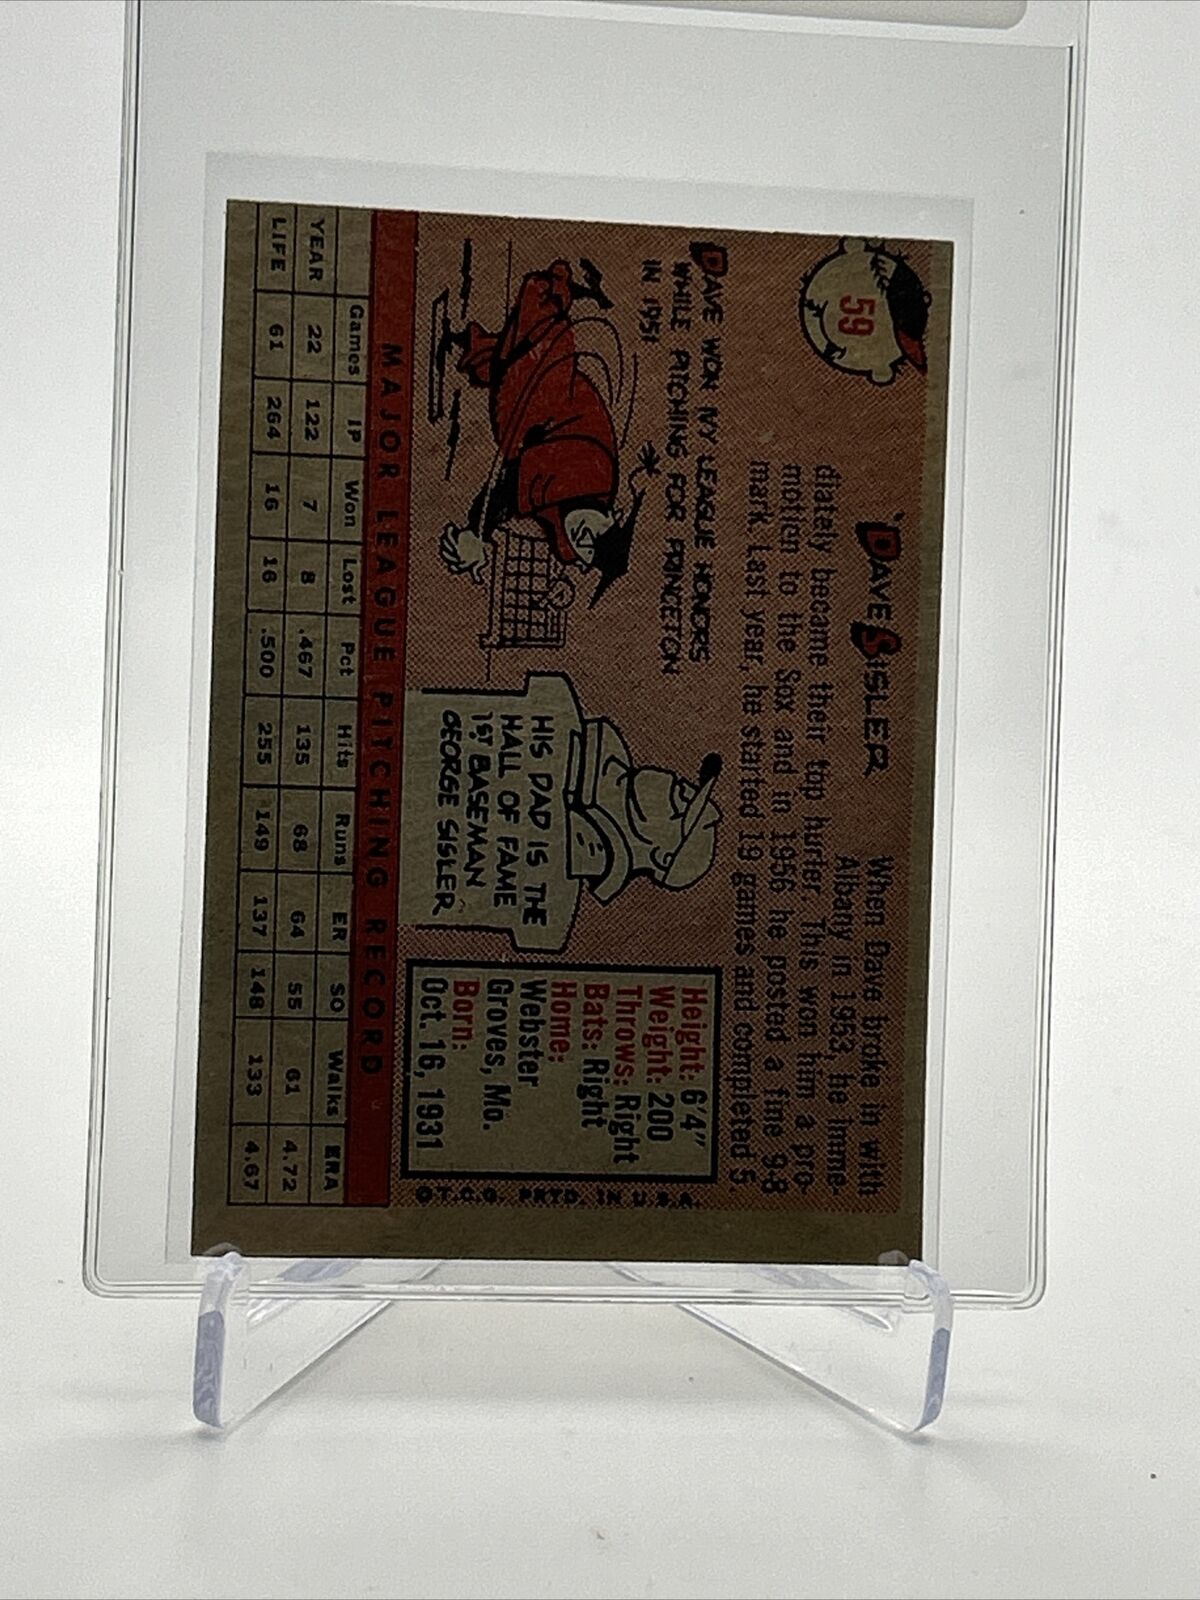 59
DAVE SISLER
When Dave broke in with
Albany in 1953, he imme-
diately became their top hurler. This won him a pro-
motion to the Sox and in 1956 he posted a fine 9-8
mark. Last year, he started 19 games and completed 5.
DAVE WON IVY LEAGUE HONORS
WHILE PITCHING FOR PRINCETON
IN 1951
HIS DAD IS THE
HALL OF FAME
1ST BASEMAN
GEORGE SISLER
Height: 6'4"
Weight: 200
Throws: Right
Bats: Right
Home:
Webster
Groves, Mo.
Born:
Oct. 16, 1931
© T.C.G. PRTD. IN U.S.A.
MAJOR LEAGUE PITCHING RECORD
Games IP Won Lost Pct Hits Runs ER SO Walks ERA
YEAR 22 122 7 8 .467 135 68 64 55 61 4.72
LIFE 61 264 16 16 .500 255 149 137 148 133 4.67